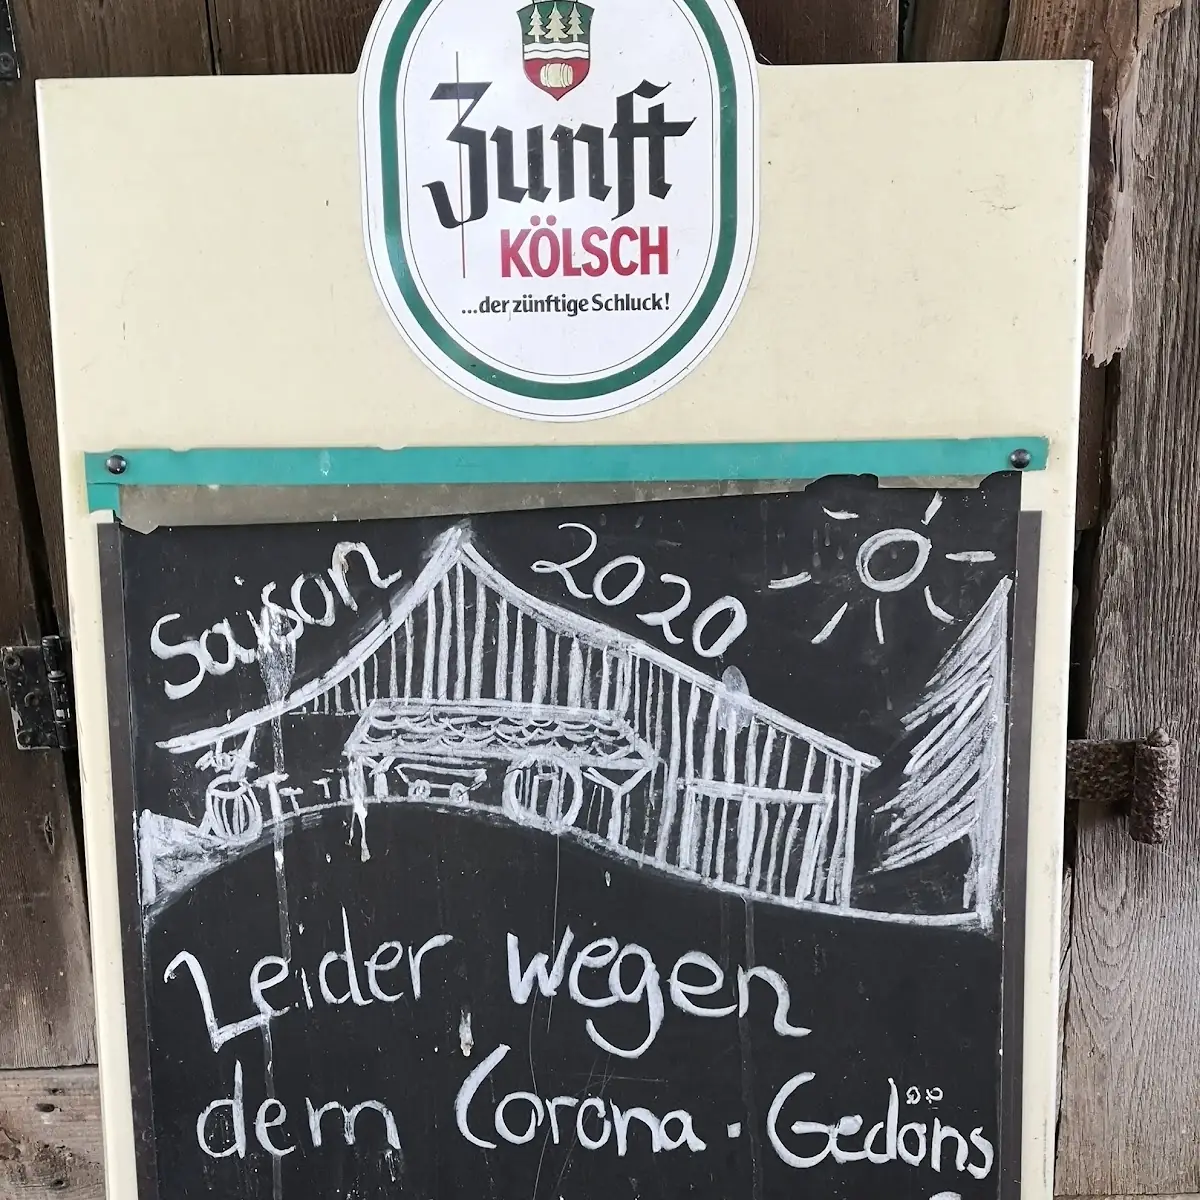 Zunft
KÖLSCH
...der zünftige Schluck!
Saison 2020
Leider wegen
dem Corona-Gedöns